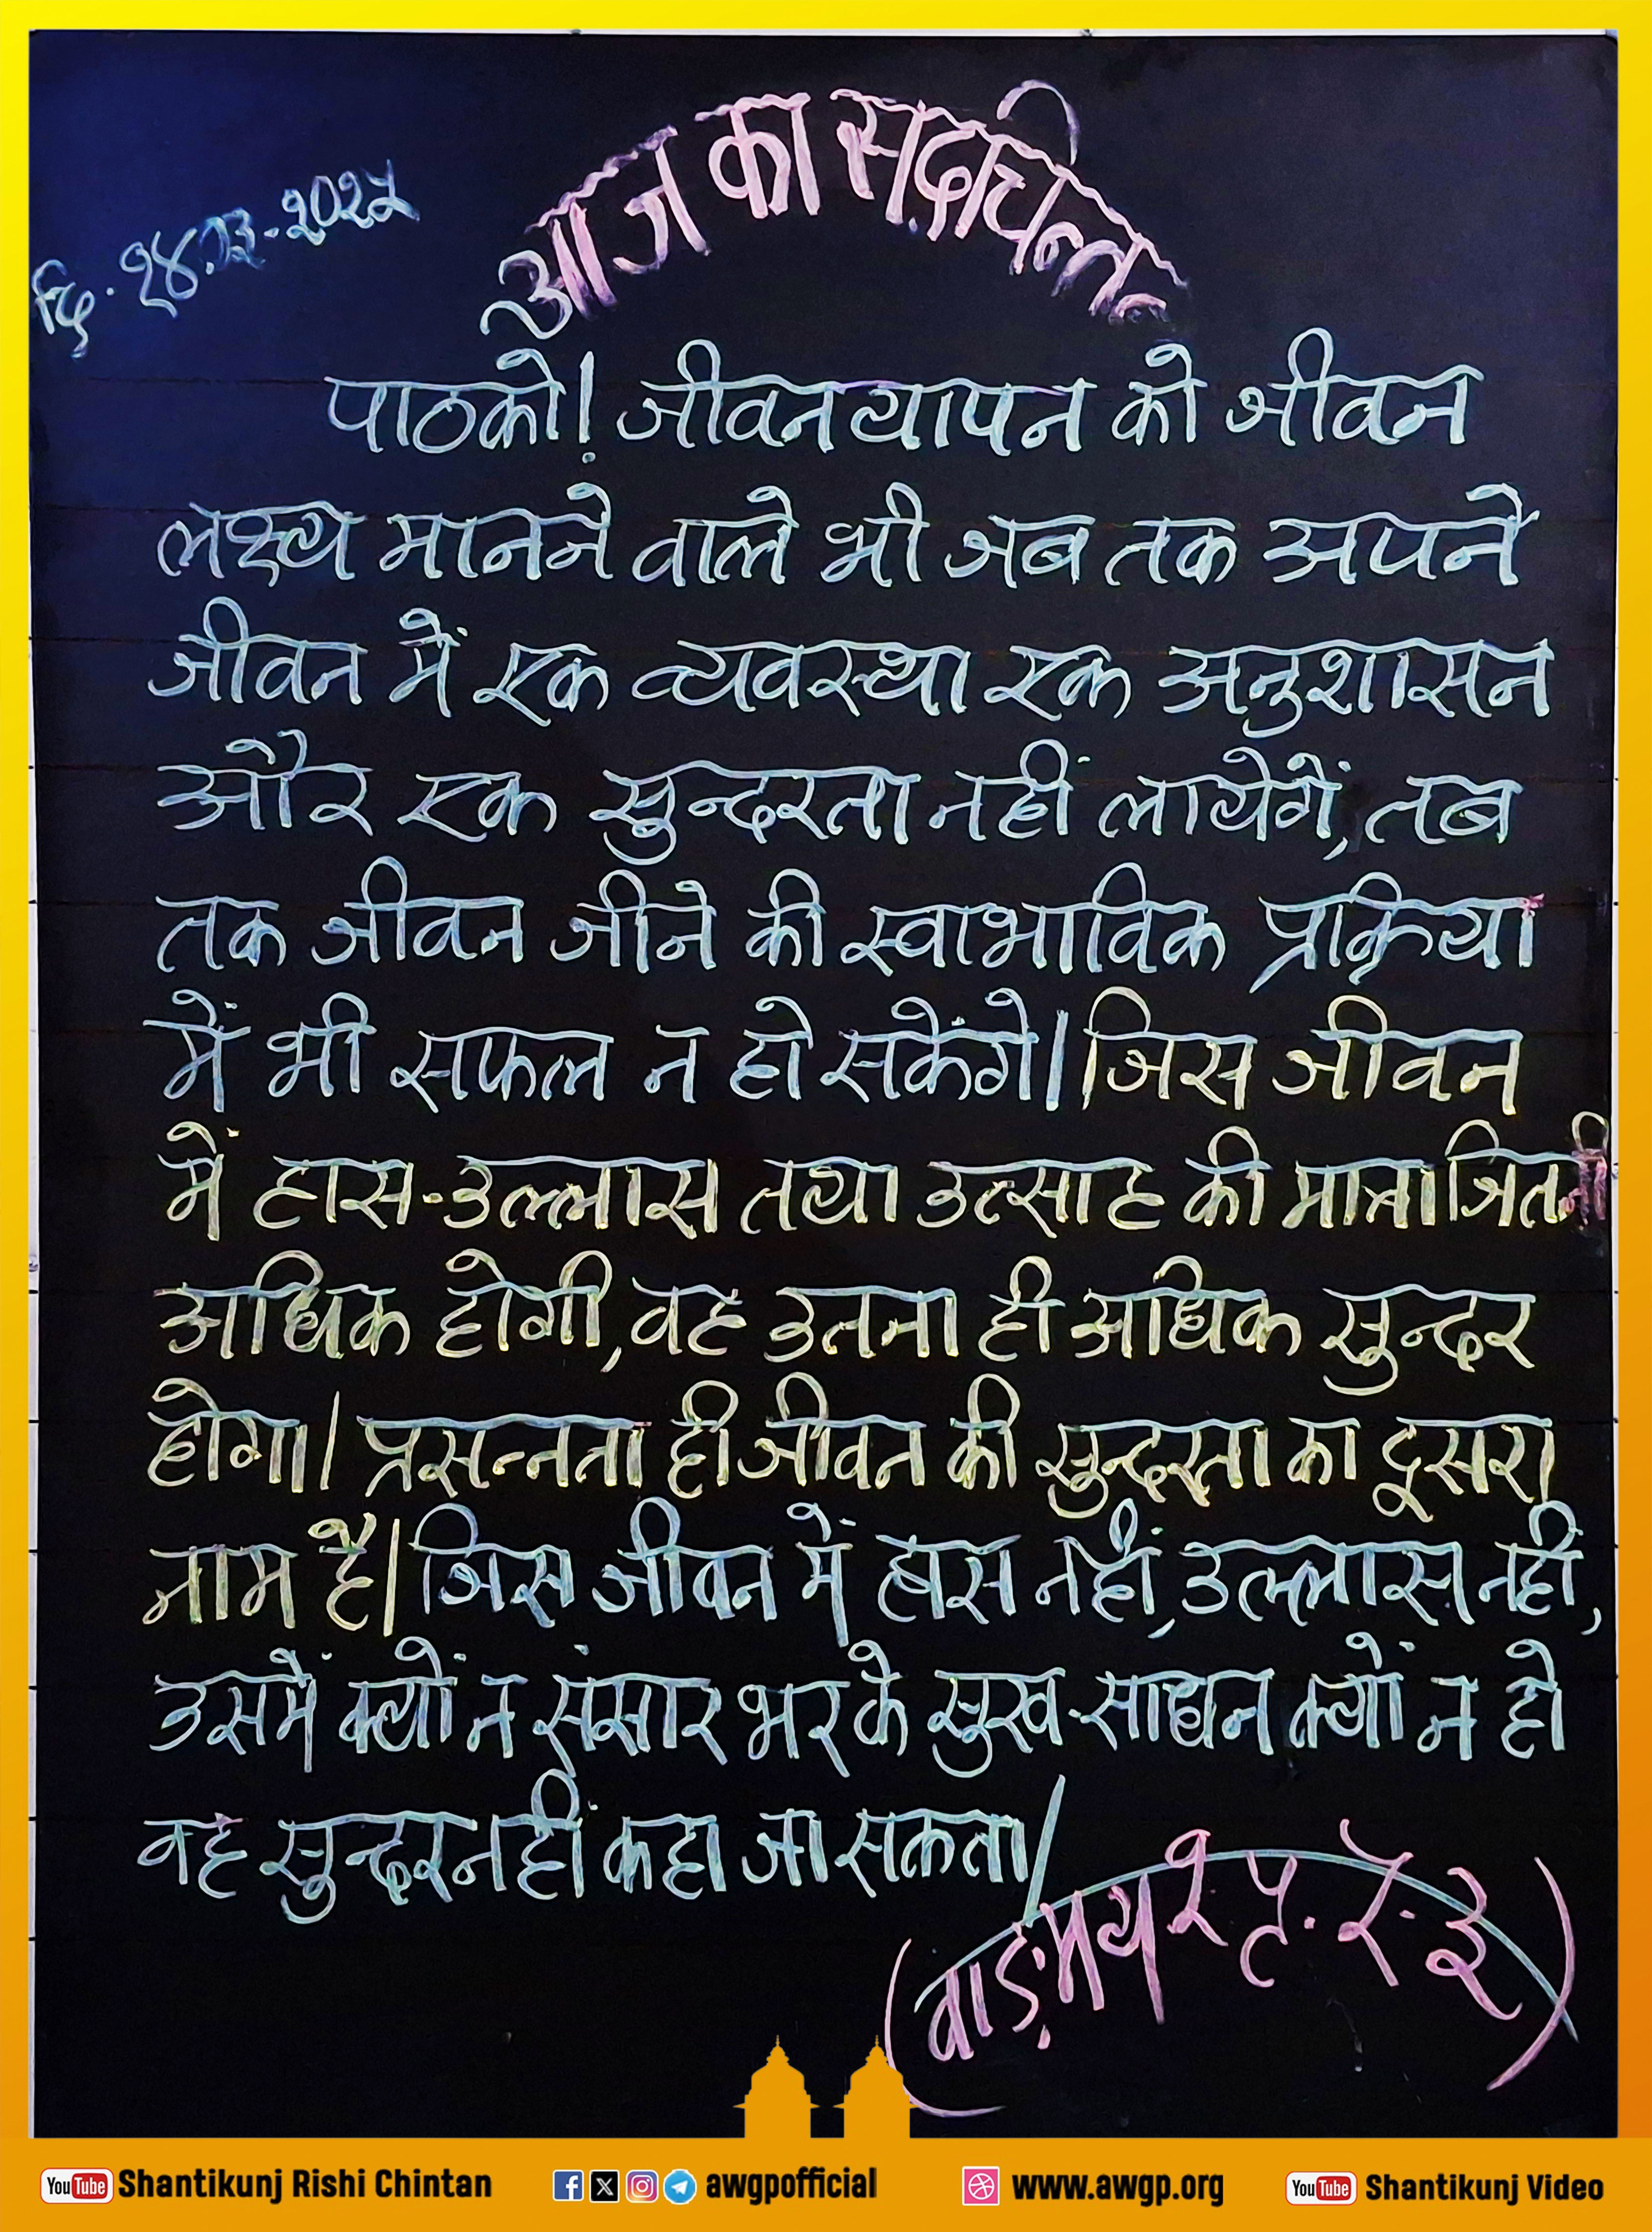 आज का सद्चिन्तन
दि. १४.०३-२०२५
पाठको! जीवनयापन को जीवन
लक्ष्य मानने वाले भी जब तक अपने
जीवन में एक व्यवस्था एक अनुशासन
और एक सुन्दरता नहीं लायेगें, तब
तक जीवन जीने की स्वाभाविक प्रक्रिया
में भी सफल न हो सकेंगे। जिस जीवन
में हास-उल्लास तथा उत्साह की मात्रा जितनी
अधिक होगी, वह उतना ही अधिक सुन्दर
होगा। प्रसन्नता ही जीवन की सुन्दरता का दूसरा
नाम है। जिस जीवन में हास नहीं, उल्लास नही,
उसमें क्यों न संसार भर के सुख-साधन क्यों न हो
वह सुन्दर नहीं कहा जा सकता।
(वाङ्मय १ पृ. १. ३)
YouTube Shantikunj Rishi Chintan awgpofficial www.awgp.org YouTube Shantikunj Video